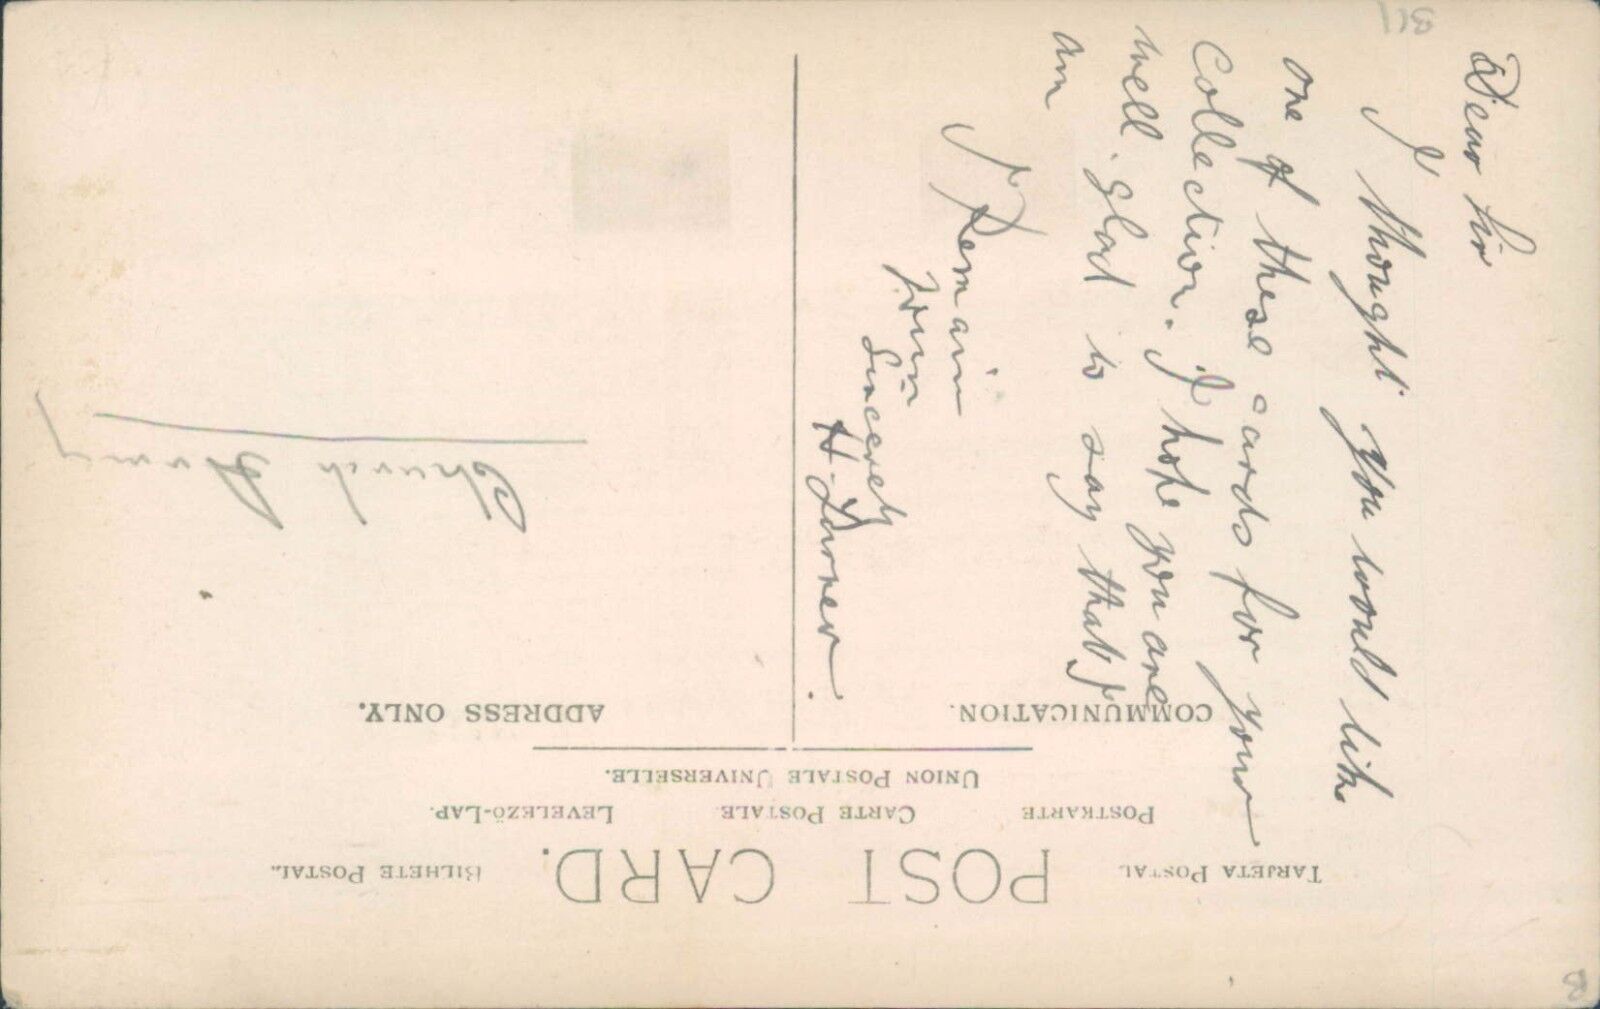 POST CARD.
TARJETA POSTAL
BILHETE POSTAL.
POSTKARTE
CARTE POSTALE.
LEVELEZÖ-LAP.
UNION POSTALE UNIVERSELLE.
COMMUNICATION.
ADDRESS ONLY.
Dear Sir
I thought you would like
one of these cards for your
Collection. I hope you are
well. glad to say that I
am
I Remain
Your
Sincerely
H. Turner.
Church Army
B